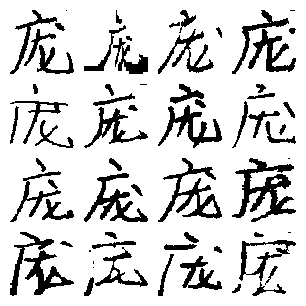 庞庞庞庞
庞庞庞庞
庞庞庞庞
庞庞庞庞